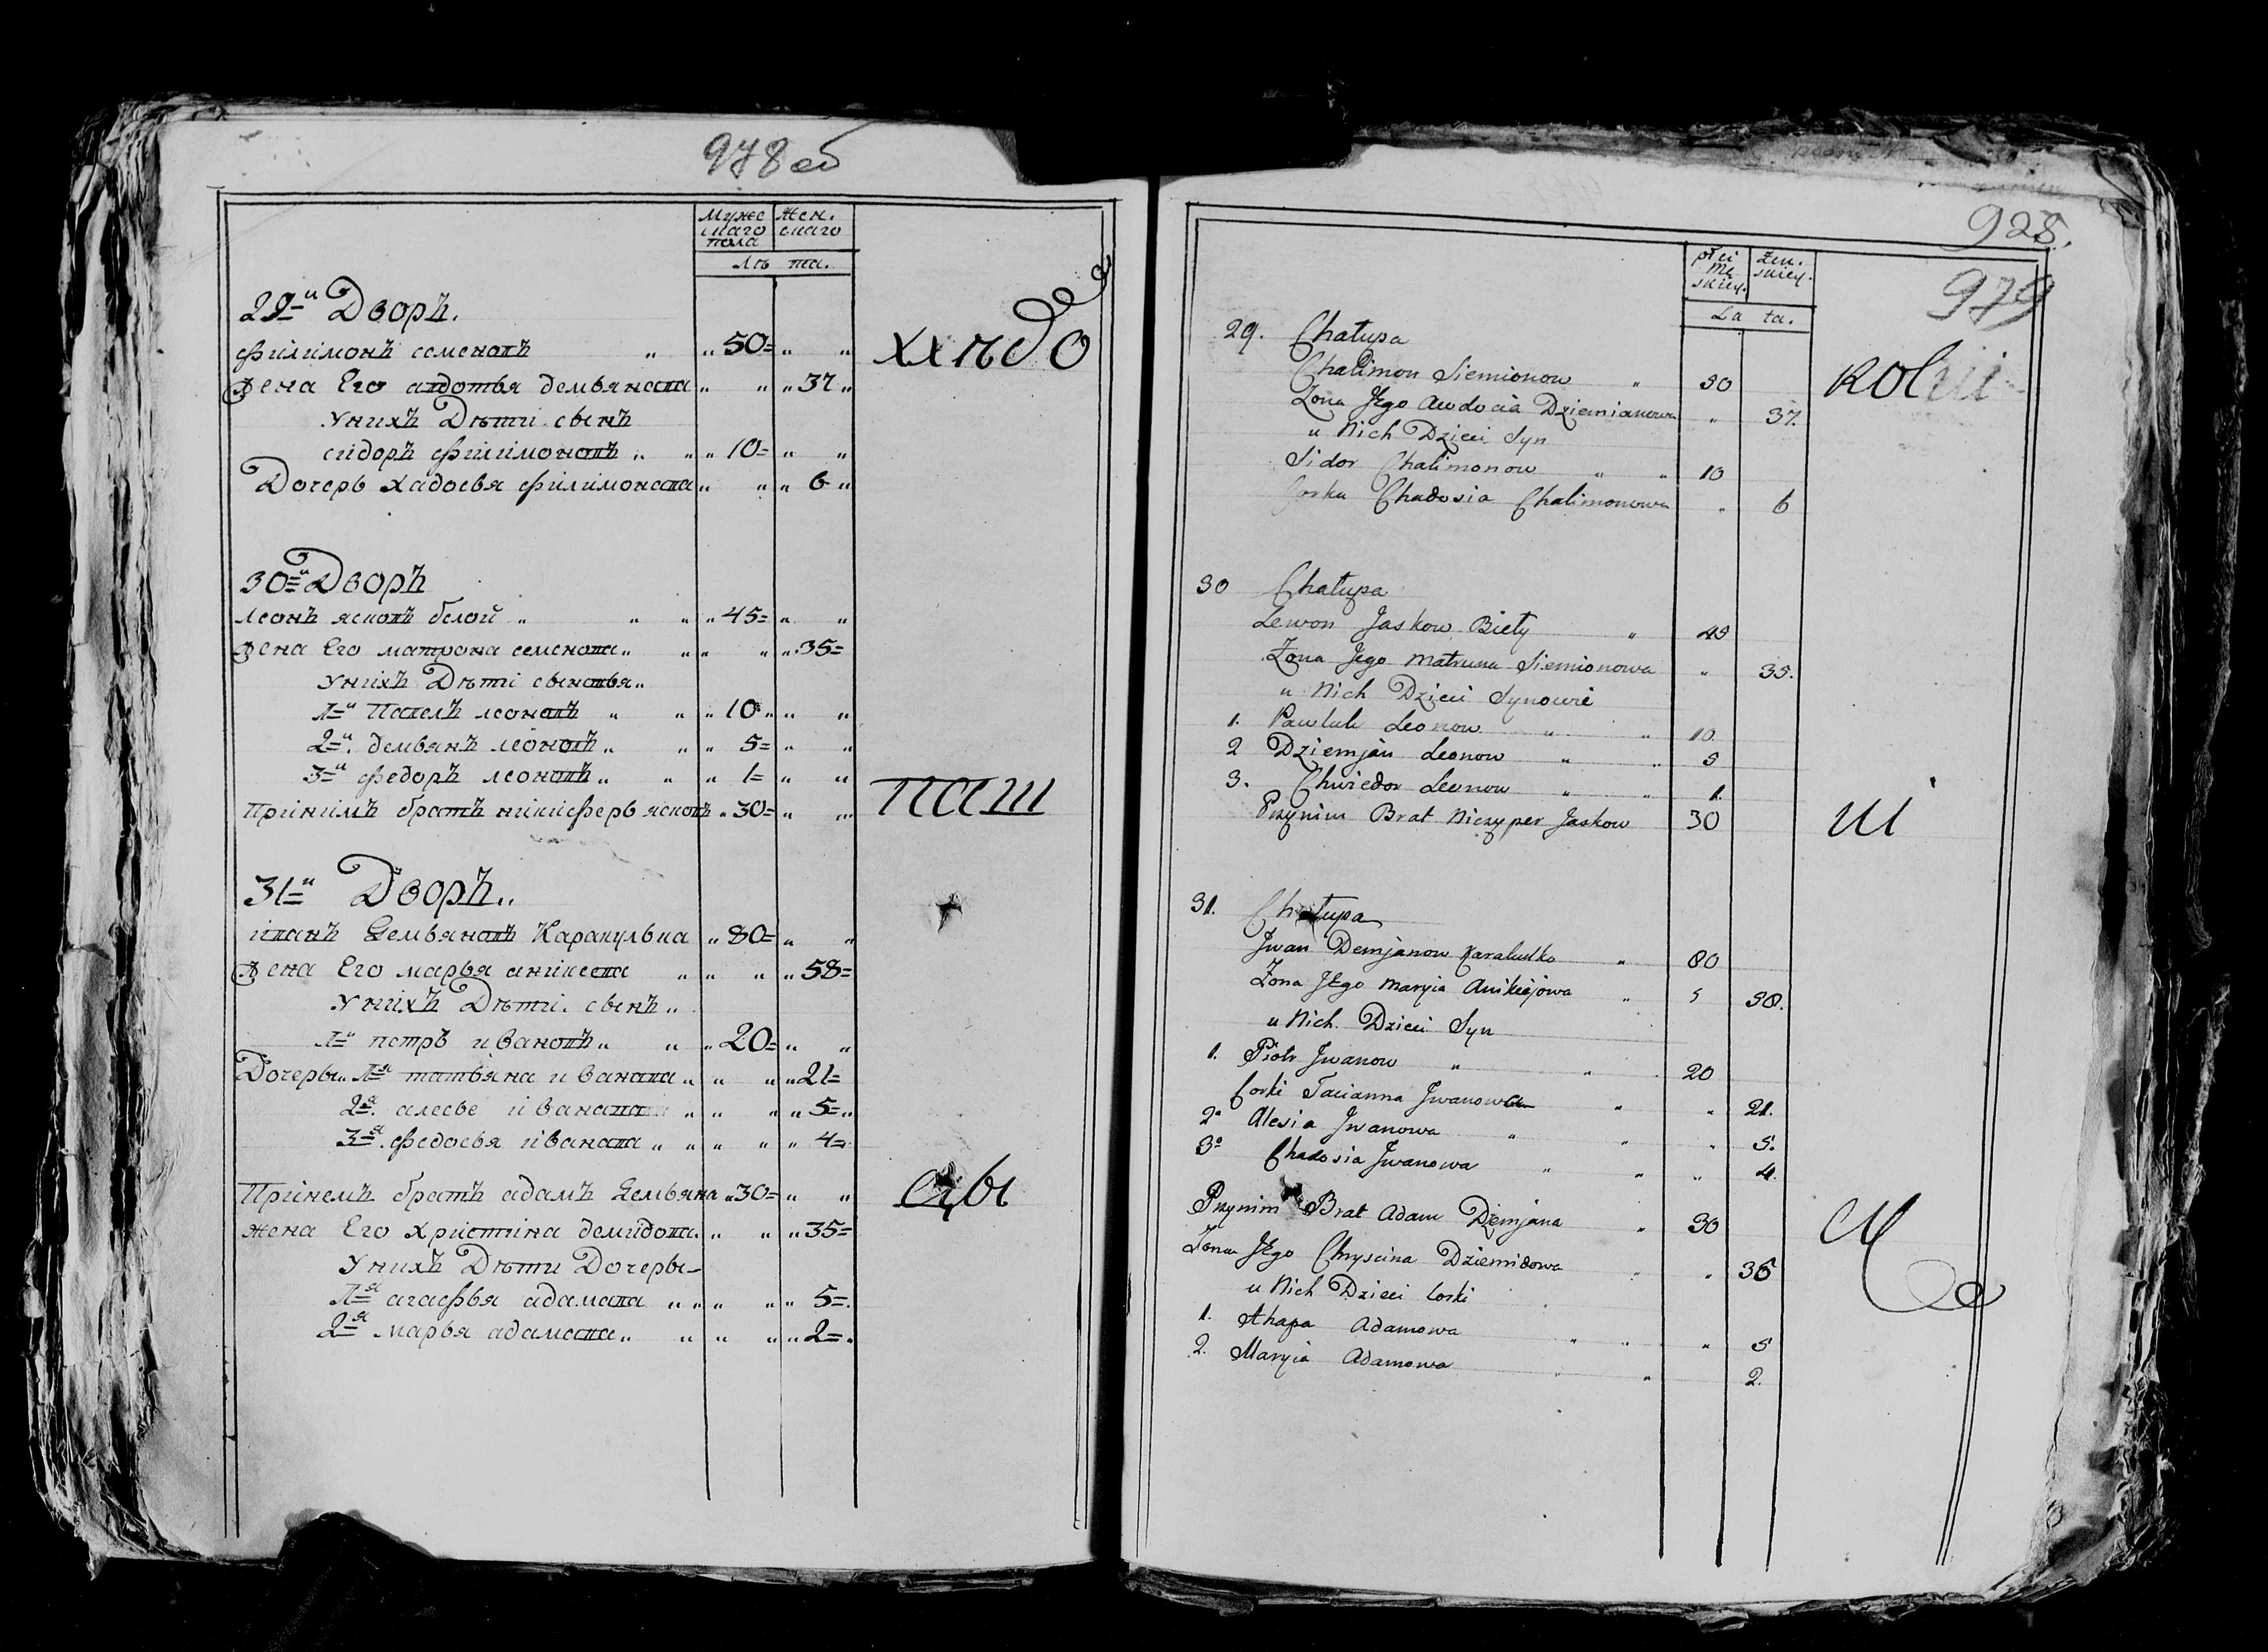 978 об
Мужескаго пола Женскаго
Лѣ та.
29-й Дворъ.
филимонъ семеновъ 50
Жена Его авдотья демьянова 37
У нихъ Дѣти сынъ
сидоръ филимоновъ 10
Дочерь хадосья филимонова 6
30-й Дворъ
леонъ ясковъ белой 45
Жена Его матрона семенова 35
У нихъ Дѣти сыновья
1-й Павелъ леоновъ 10
2-й демьянъ леоновъ 5
3-й федоръ леоновъ 1
Принимъ братъ никиферъ ясковъ 30
паш
31-й Дворъ
иванъ Демьяновъ Каракулька 80
Жена Его марья аникеева 58
У нихъ Дѣти сынъ
1-й петръ ивановъ 20
Дочеры 1-я татьяна иванова 21
2-я алесье иванова 5
3-я федосья иванова 4
Принемъ братъ адамъ Демьяна 30
жена Его христина демидова 35
У нихъ Дѣти Дочеры
1-я агафья адамова 5
2-я марья адамова 2
928.
979
płci męskiey. żeńskiey.
La ta.
29. Chałupa
Chalimon Siemionow 50
Żona Jego Awdocia Dziemianowa 37.
u Nich Dzieci Syn
Sidor Chalimonow 10
Corka Chadosia Chalimonowa 6
30 Chałupa
Lewon Jaskow Biały 45
Żona Jego Matruna Siemionowa 35.
u Nich Dzieci Synowie
1. Pawluk Leonow 10
2 Dziemjan Leonow 5
3. Chwiedor Leonow 1.
Przynim Brat Niczyper Jaskow 30
31. Chałupa
Jwan Demjanow Karakulko 80
Żona Jego Maryia Anikiejowa 58.
u Nich Dzieci Syn
1. Piotr Jwanow 20
Corki Tacianna Jwanowa 21.
2a Alesia Jwanowa 5.
3a Chadosia Jwanowa 4.
Przynim Brat Adam Diemjana 30
Żona Jego Chryscina Dziemidowa 35
u Nich Dzieci Corki
1. Ahapa Adamowa 5
2. Maryia Adamowa 2.